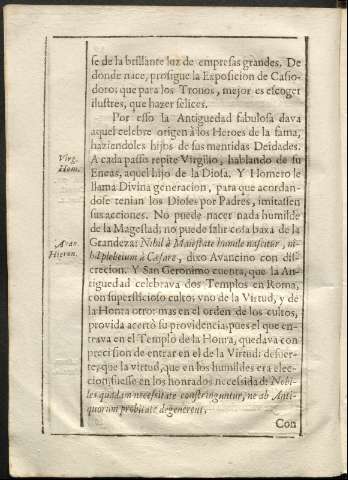 se de la brillante luz de empresas grandes. De
donde nace, prosigue la Exposicion de Casio-
doro: que para los Tronos, mejor es escoger
ilustres, que hazer felices.
Por esso la Antiguedad fabulosa dava
aquel celebre origen à los Heroes de la fama,
haziendoles hijos de sus mentidas Deidades.
Virg.
Hom.
A cada passo repite Virgilio, hablando de su
Eneas, aquel hijo de la Diosa. Y Homero le
llama Divina generacion, para que acordan-
dose tenian los Dioses por Padres, imitassen
sus acciones. No puede nacer nada humilde
de la Magestad; no puede salir cosa baxa de la
Avan.
Hieron.
Grandeza: Nihil à Maiestate humile nascitur, ni-
hil plebeium à Cæsare, dixo Avancino con dis-
crecion. Y San Geronimo cuenta, que la An-
tiguedad celebrava dos Templos en Roma,
con supersticioso culto: vno de la Virtud, y de
la Honra otro: mas en el orden de los cultos,
provida acertò su providencia, pues el que en-
trava en el Templo de la Honra, quedava con
precision de entrar en el de la Virtud: de suer-
te, que la virtud, que en los humildes era elec-
cion, fuesse en los honrados necessidad: Nobi-
les quadam necessitate constringuntur, ne ab Anti-
quorum probitate degenerent.
Con